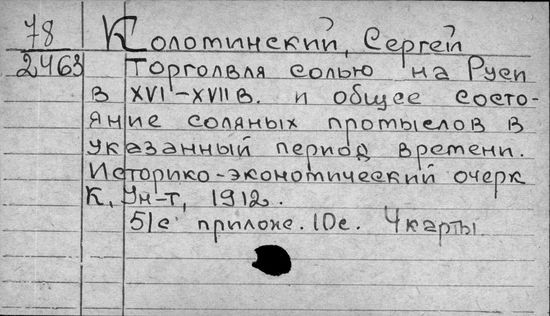 78
2463
Колотинский, Сергей
Торговля солью на Руси
в XVI-XVII в. и общее состо-
яние соляных промыслов в
указанный период времени.
Историко-экономический очерк
К, Ун-т, 1912.
51с прилож. 10с. 4 карты